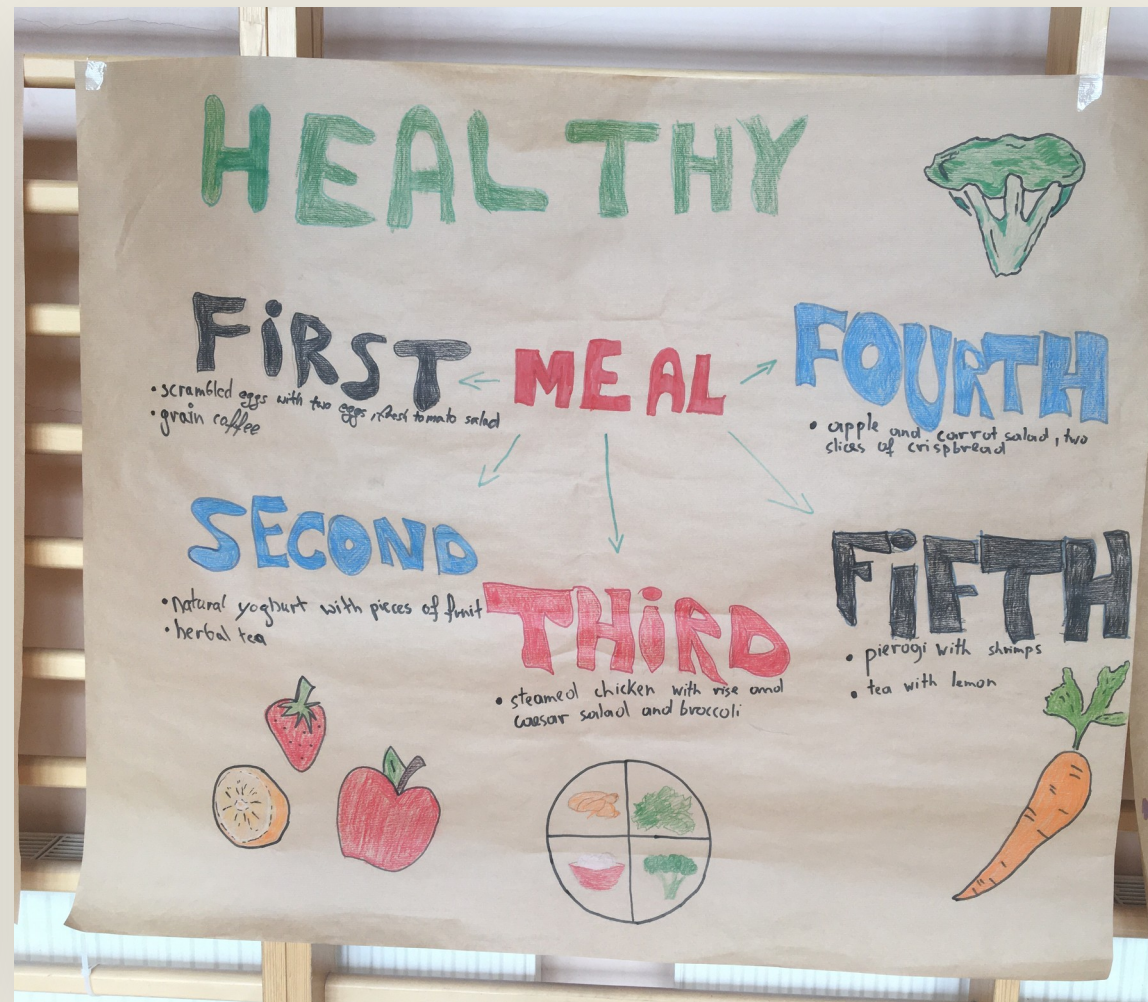 HEALTHY
MEAL
FiRST
• scrambled eggs with two eggs, fresh tomato salad
• grain coffee
SECOND
• natural yoghurt with pieces of fruit
• herbal tea
THiRD
• steamed chicken with rise and
caesar salad and broccoli
FOURTH
• apple and carrot salad, two
slices of crispbread
FiFTH
• pierogi with shrimps
• tea with lemon